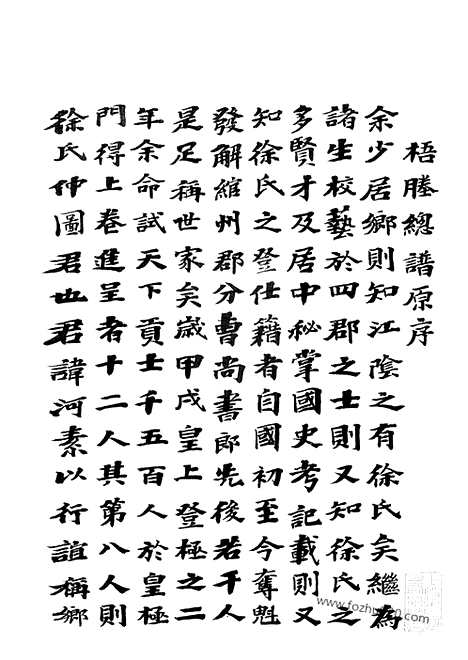 梧塍總譜原序
余少居鄉則知江陰之有徐氏矣繼為
諸生校藝於四郡之士則又知徐氏之
多賢才及居中秘掌國史考記載則又
知徐氏之登仕籍者自國初至今奪魁
發解綰州郡分曹尚書郎先後若干人
是足稱世家矣歲甲戌皇上登極之二
年余命試天下貢士千五百人於皇極
門得上卷進呈者十二人其第八人則
徐氏仲圖君也君諱河素以行誼稱鄉
www.fozhu920.com